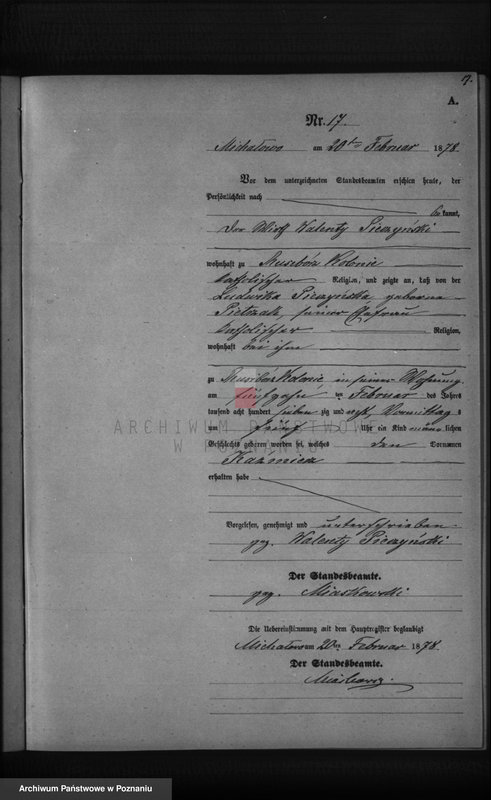 17.
A.
Nr. 17.
Michałowo am 20ten Februar 1878.
Vor dem unterzeichneten Standesbeamten erschien heute, der
Persönlichkeit nach
bekannt,
der Wirth Walenty Pieczyński
wohnhaft zu Rusibórz Kolonie
katholischer Religion, und zeigte an, daß von der
Ludwika Pieczyńska, geborene
Pietrzak, seiner Ehefrau
katholischer Religion,
wohnhaft bei ihm
zu Rusiborz Kolonie in seiner Wohnung
am fünfzehnten Februar des Jahres
tausend acht hundert sieben zig und acht, Vormittags
um fünf Uhr ein Kind männlichen
Geschlechts geboren worden sei, welches den Vornamen
Kazimierz
erhalten habe
ARCHIWUM PAŃSTWOWE
W POZNANIU
Vorgelesen, genehmigt und unterschrieben
gez. Walenty Pieczyński
Der Standesbeamte.
gez. Miaskowski
Die Uebereinstimmung mit dem Hauptregister beglaubigt
Michałowo am 20ten Februar 1878.
Der Standesbeamte.
Archiwum Państwowe w Poznaniu